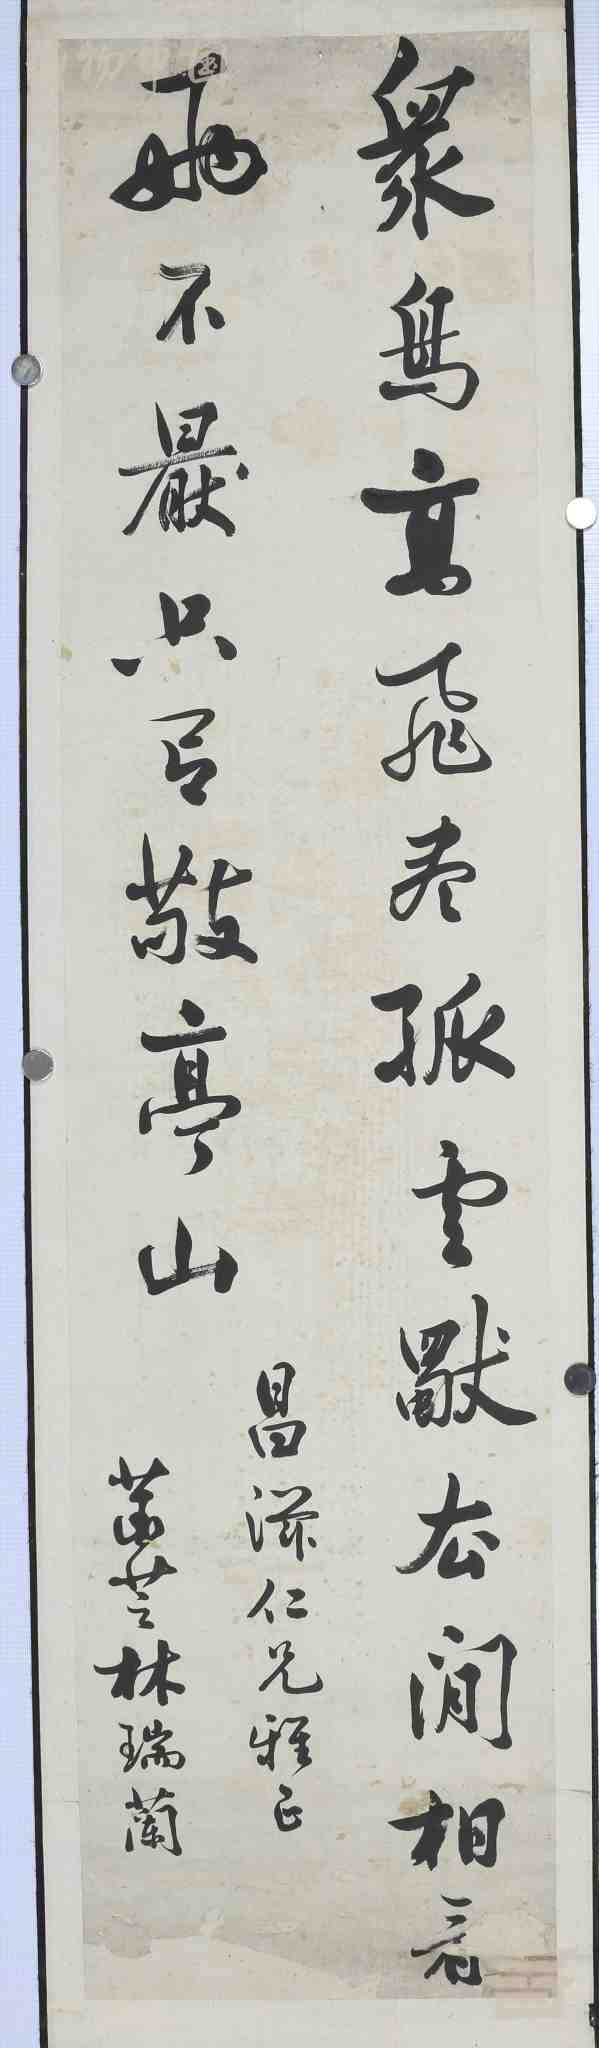 衆鳥高飛盡孤雲獨去閒相看
兩不厭只有敬亭山
昌仁兄雅正
芝林瑞蘭